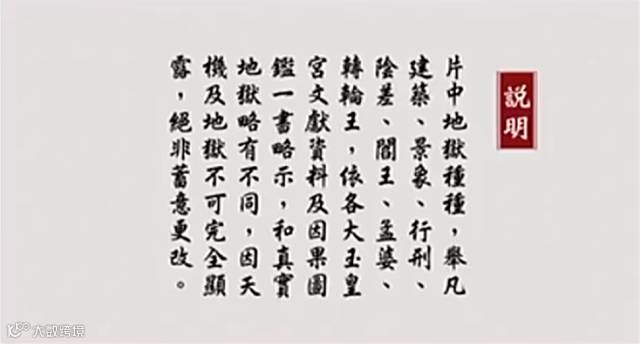 説明
片中地獄種種，舉凡
建築、景象、行刑、
陰差、閻王、孟婆、
轉輪王，依各大玉皇
宮文獻資料及因果圖
鑑一書略示，和真實
地獄略有不同，因天
機及地獄不可完全顯
露，絕非蓄意更改。
大數跨境